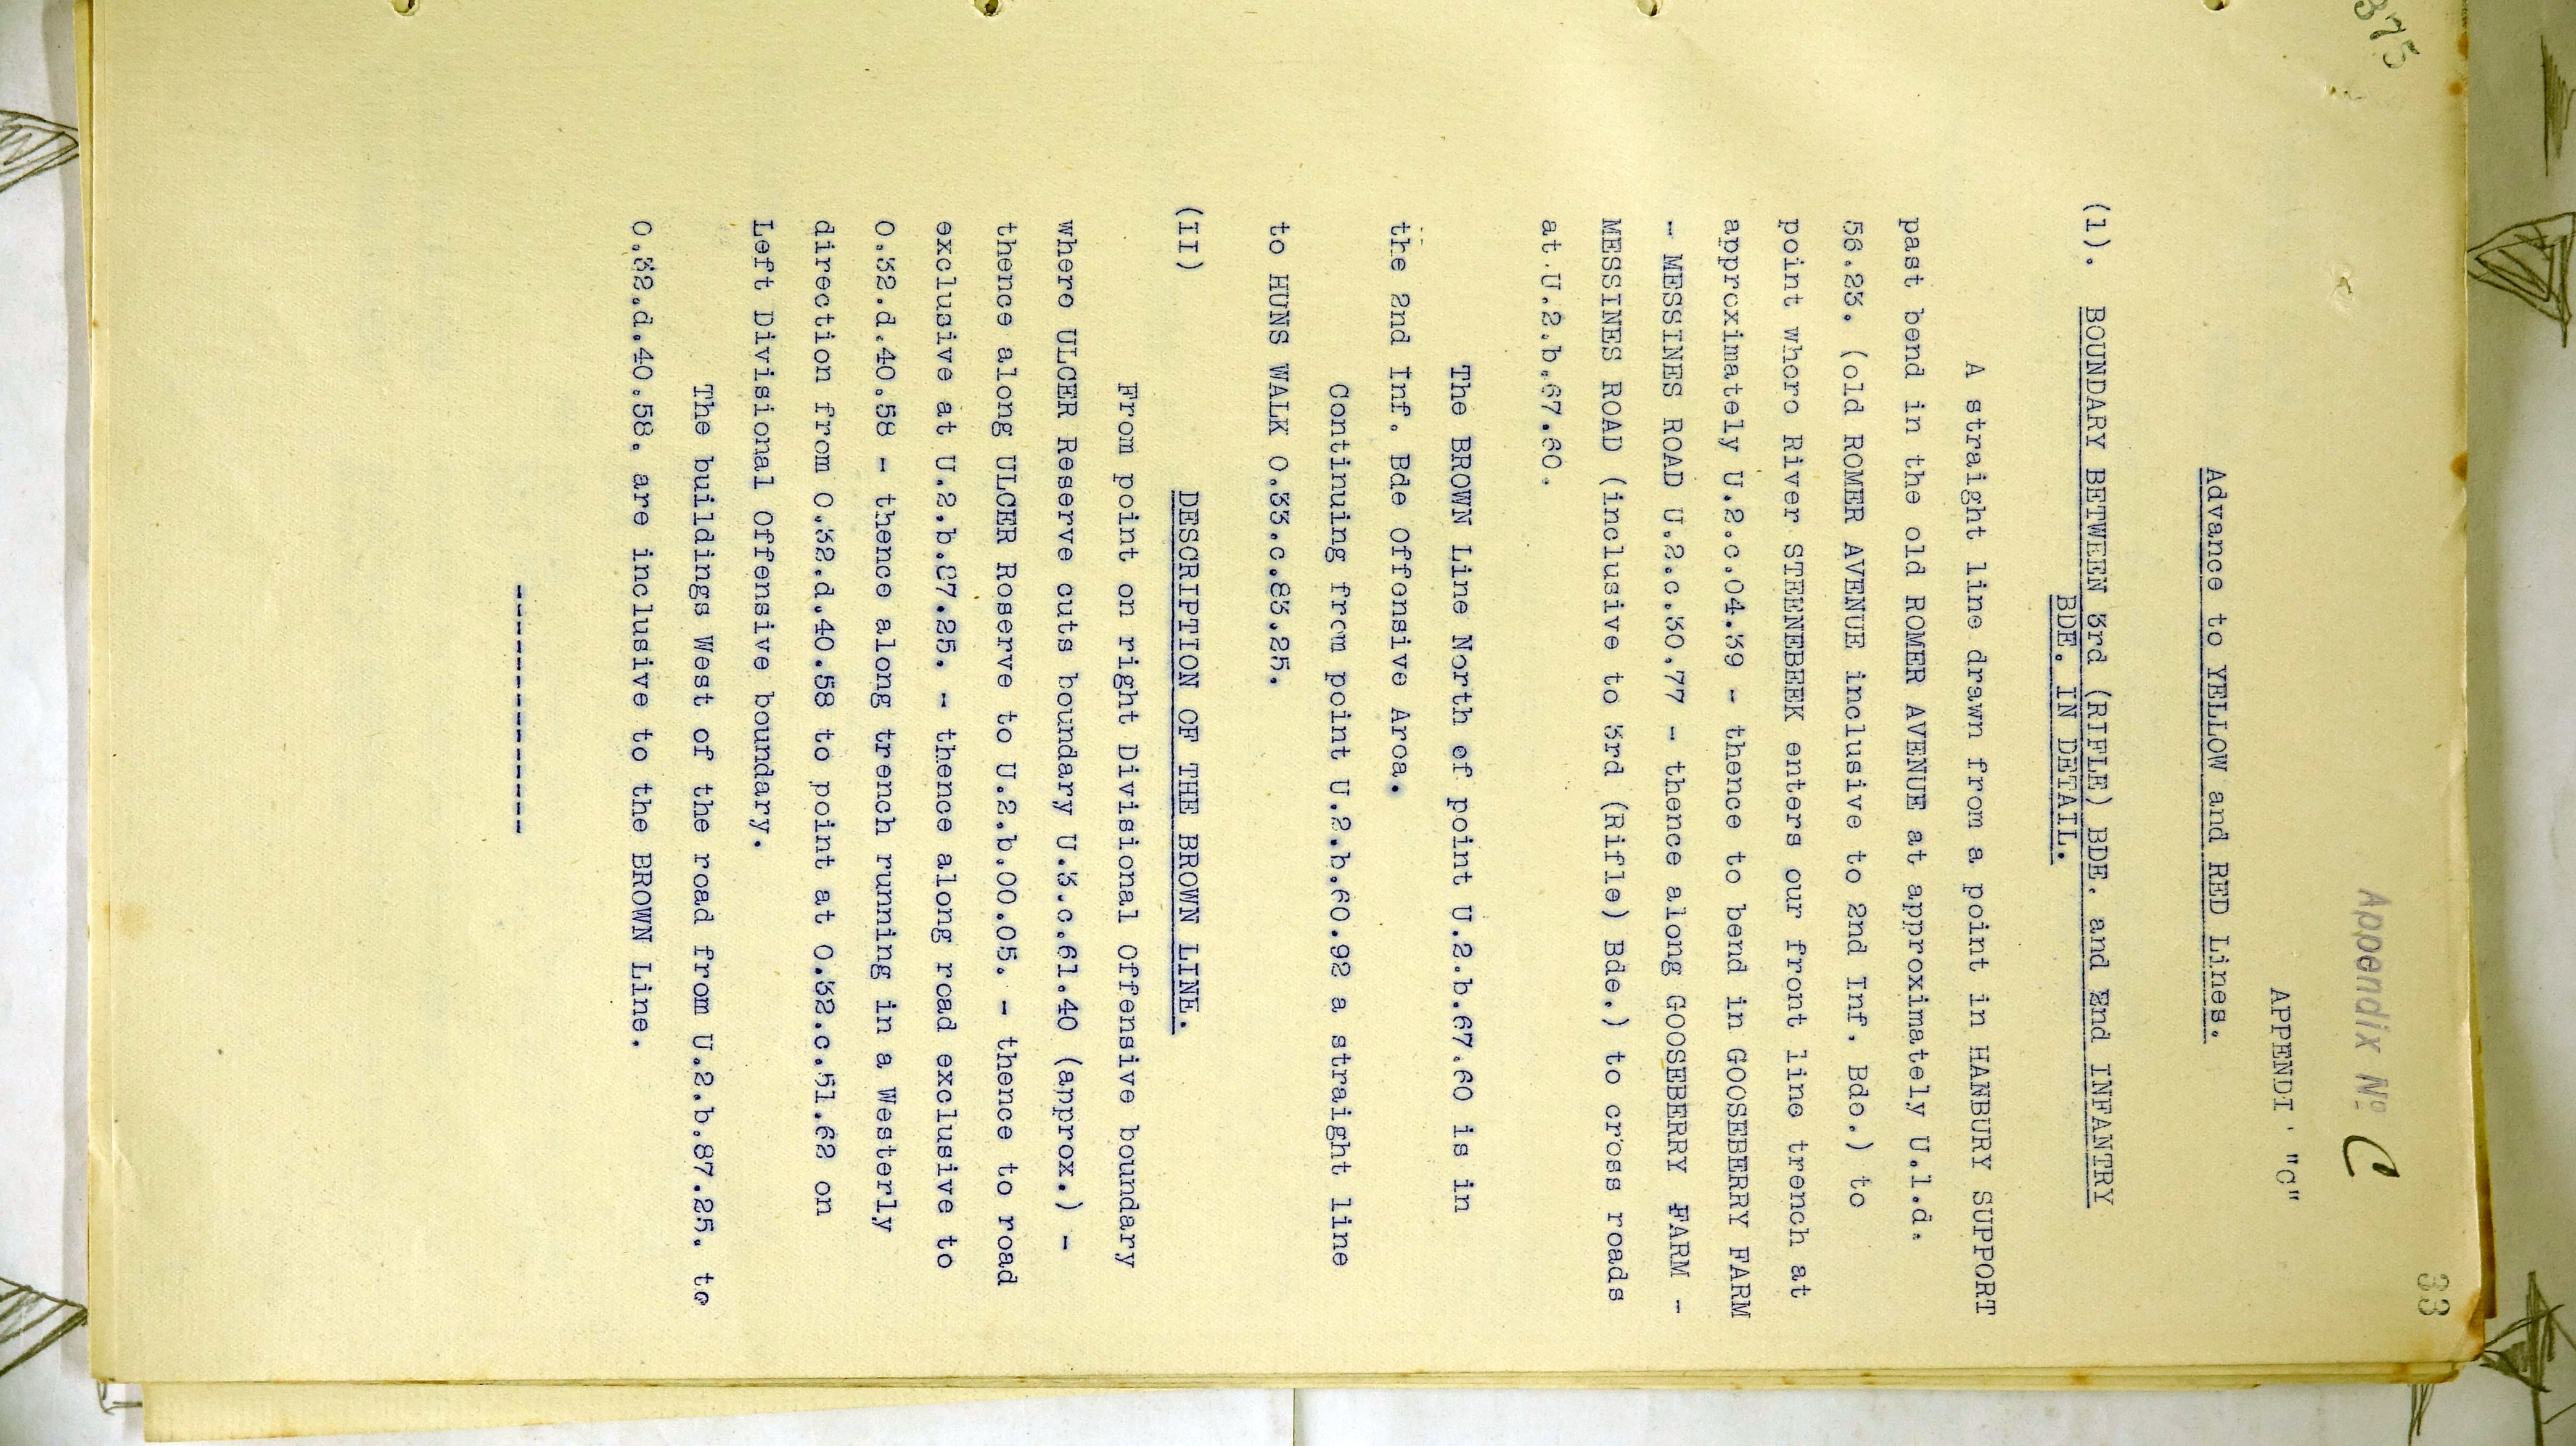 375
33
Appendix No C
APPENDI ' "C"
Advance to YELLOW and RED Lines.
(1). BOUNDARY BETWEEN 3rd (RIFLE) BDE. and 2nd INFANTRY
BDE. IN DETAIL.
A straight line drawn from a point in HANBURY SUPPORT
past bend in the old ROMER AVENUE at approximately U.1.d.
56.23. (old ROMER AVENUE inclusive to 2nd Inf. Bde.) to
point where River STEENEBEEK enters our front line trench at
approximately U.2.c.04.39 - thence to bend in GOOSEBERRY FARM
- MESSINES ROAD U.2.c.30.77 - thence along GOOSEBERRY FARM -
MESSINES ROAD (inclusive to 3rd (Rifle) Bde.) to cross roads
at U.2.b.67.60.
The BROWN Line North of point U.2.b.67.60 is in
the 2nd Inf. Bde Offensive Aroa.
Continuing from point U.2.b.60.92 a straight line
to HUNS WALK O.33.c.83.25.
(II) DESCRIPTION OF THE BROWN LINE.
From point on right Divisional Offensive boundary
where ULCER Reserve cuts boundary U.3.c.61.40 (approx.) -
thence along ULCER Roserve to U.2.b.00.05. - thence to road
exclusive at U.2.b.87.25. - thence along road exclusive to
O.32.d.40.58 - thence along trench running in a Westerly
direction from O.32.d.40.58 to point at O.32.c.51.62 on
Left Divisional Offensive boundary.
The buildings West of the road from U.2.b.87.25. to
O.32.d.40.58. are inclusive to the BROWN Line.
--------------